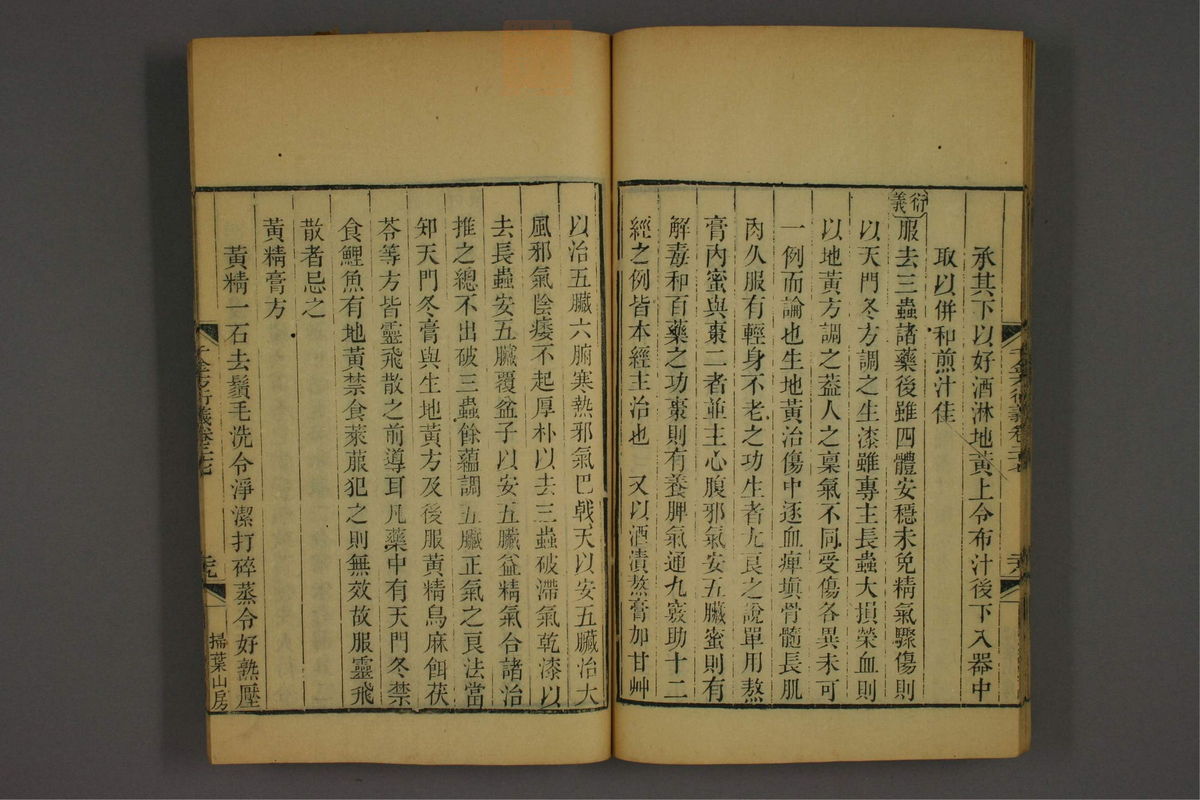 承其下以好酒淋地黃上令布汁後下入器中
取以併和煎汁佳
衍義
服去三蟲諸藥後雖四體安穩未免精氣驟傷則
以天門冬方調之生漆雖專主長蟲大損榮血則
以地黃方調之葢人之稟氣不同受傷各異未可
一例而論也生地黃治傷中逐血痺填骨髓長肌
肉久服有輕身不老之功生者尢良之說單用熬
膏內蜜與棗二者並主心腹邪氣安五臟蜜則有
解毒和百藥之功棗則有養脾氣通九竅助十二
經之例皆本經主治也 又以酒漬熬膏加甘艸
以治五臟六腑寒熱邪氣巴戟天以安五臟治大
風邪氣陰痿不起厚朴以去三蟲破滯氣乾漆以
去長蟲安五臟覆盆子以安五臟益精氣合諸治
推之總不出破三蟲餘蘊調五臟正氣之良法當
知天門冬膏與生地黃方及後服黃精烏麻餌茯
苓等方皆靈飛散之前導耳凡藥中有天門冬禁
食鯉魚有地黃禁食萊菔犯之則無效故服靈飛
散者忌之
黃精膏方
黃精一石去鬚毛洗令淨潔打碎蒸令好熟壓
千金方衍義卷二十七
掃葉山房